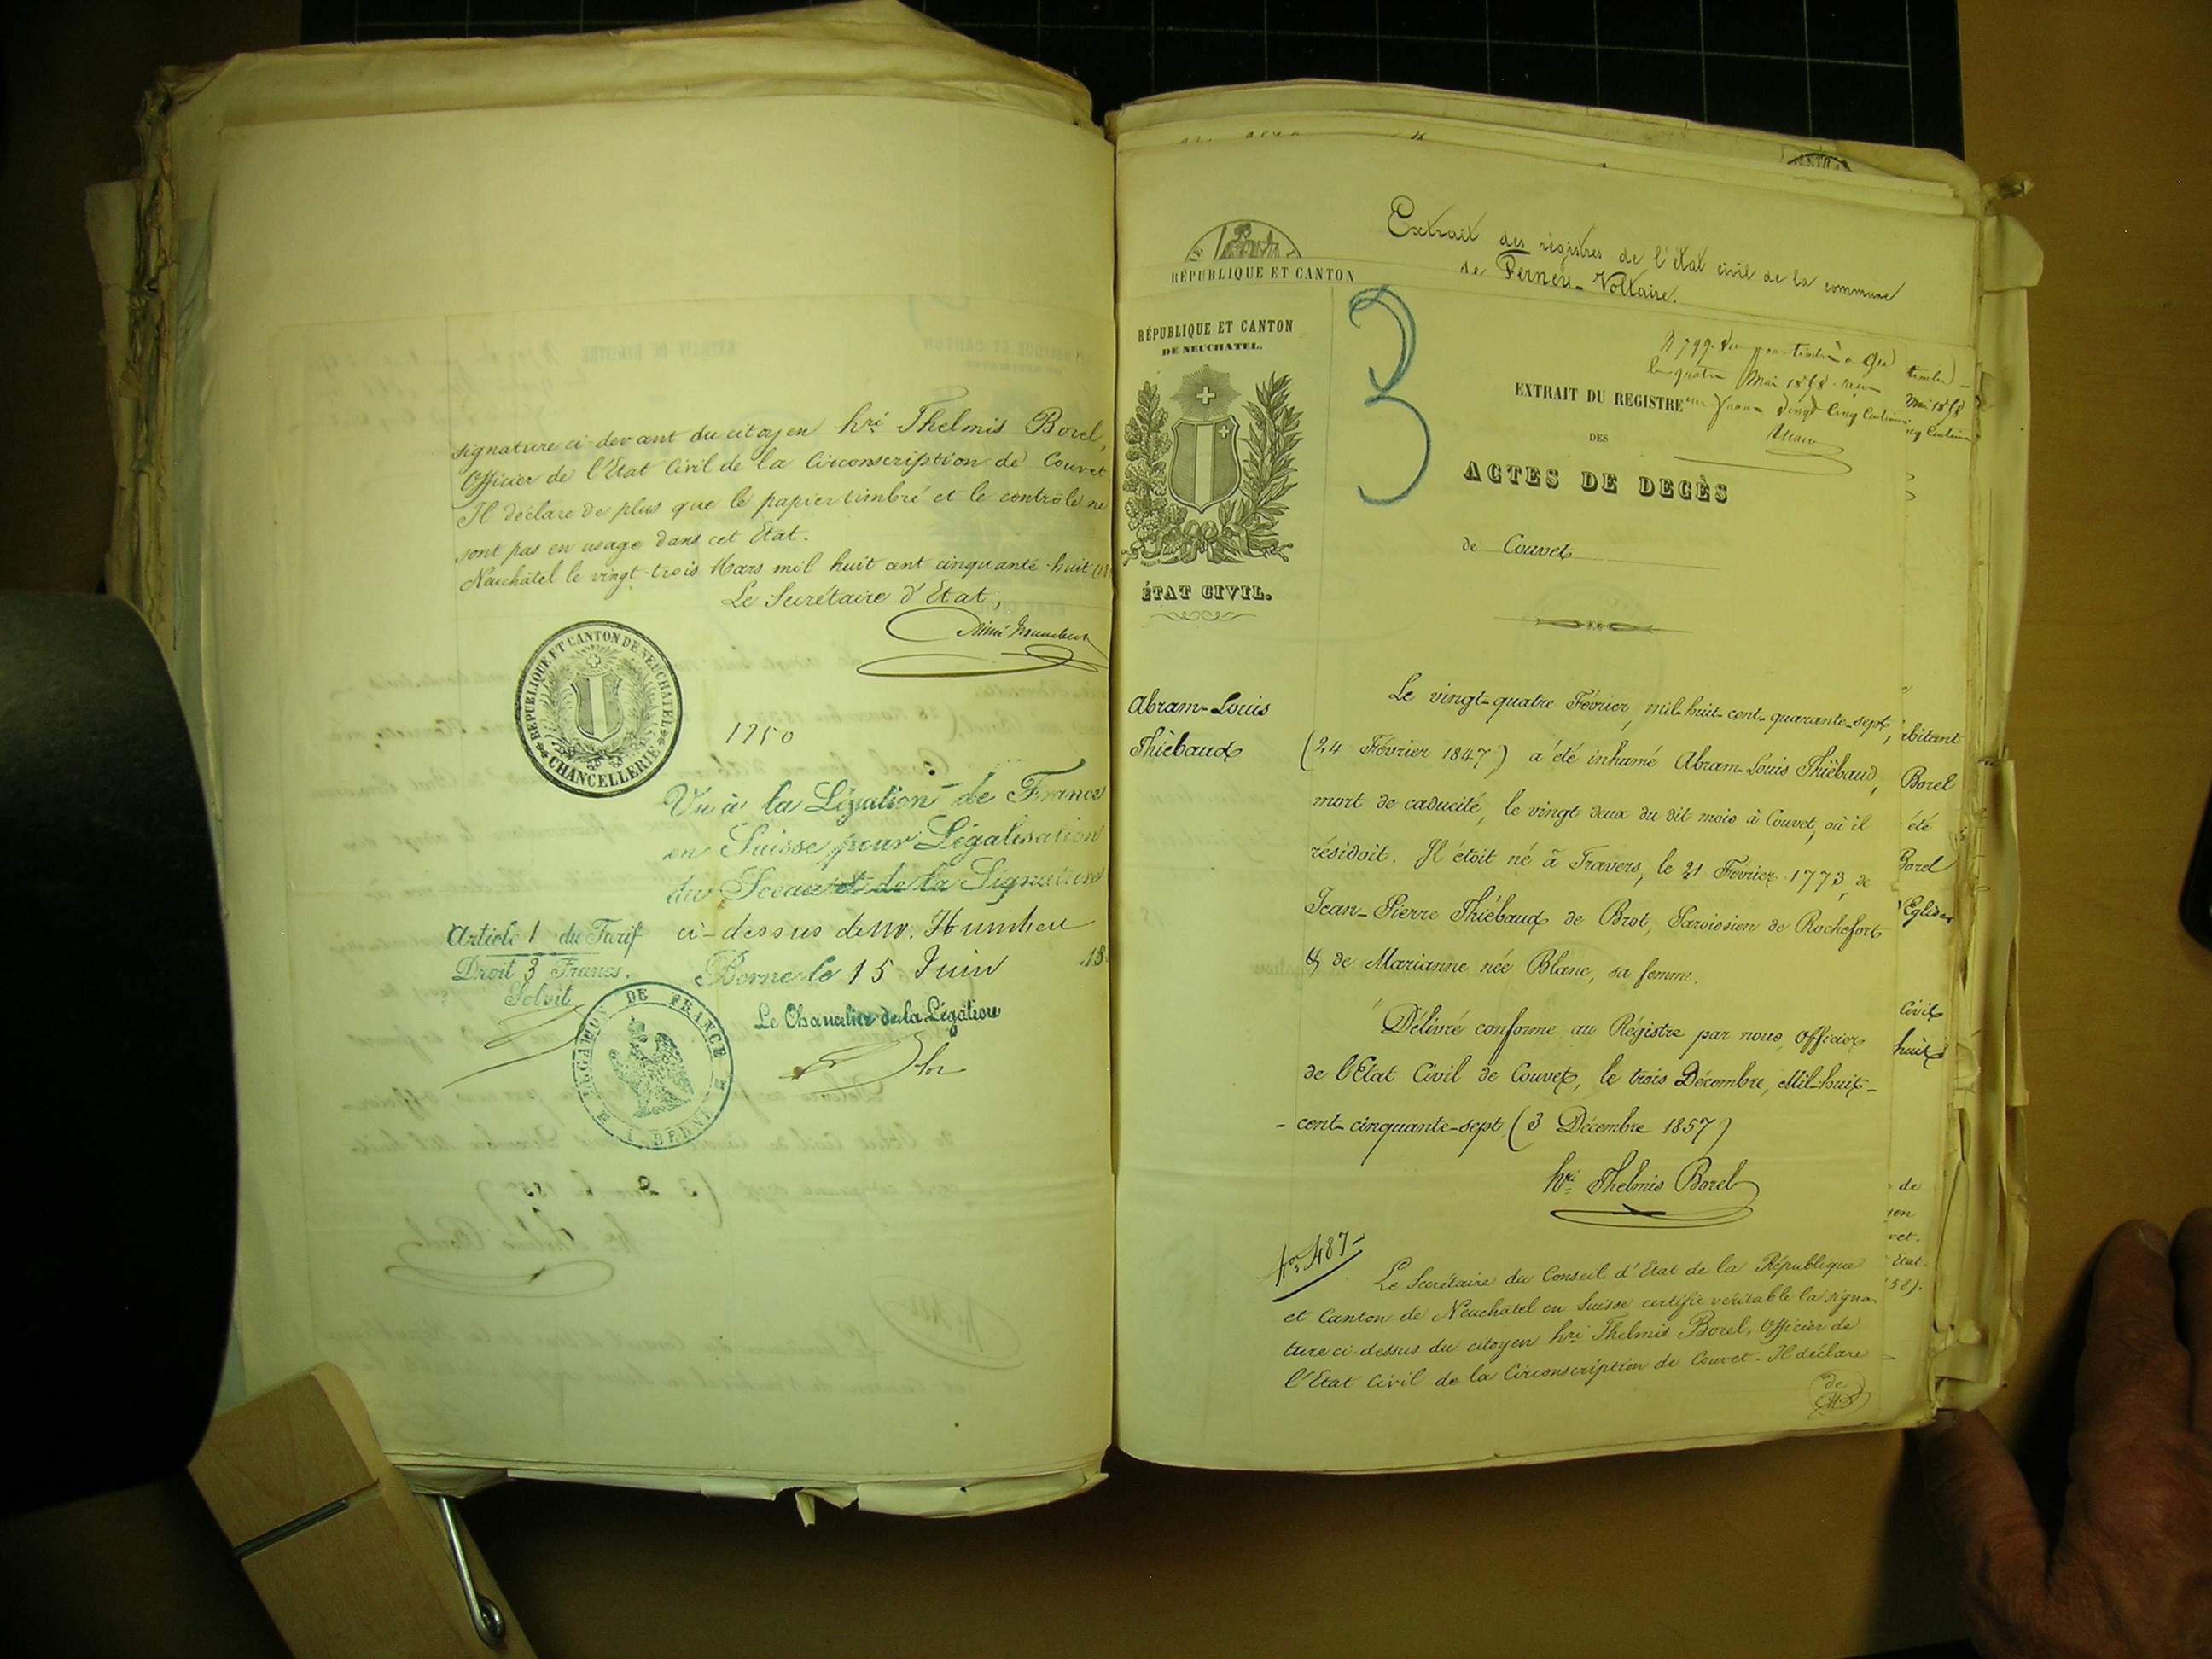 signature ci-devant du citoyen hri Thelmis Borel,
Officier de l'Etat Civil de la Circonscription de Couvet
Il déclare de plus que le papier timbré et le contrôle ne
sont pas en usage dans cet Etat.
Neuchâtel le vingt-trois Mars mil huit cent cinquante-huit
Le Secrétaire d'Etat,
Aimé Humbert
REPUBLIQUE ET CANTON DE NEUCHATEL
CHANCELLERIE
1250
Vu à la Légation de France
en Suisse pour Légalisation
du Sceau et de la Signature
ci-dessus de Mr. Humbert
Berne le 15 Juin 18
Article 1 du Tarif
Droit 3 Francs.
Solvit
Le Chancelier de la Légation
LEGATION DE FRANCE
A BERNE
Extrait des régistres de l'état civil de la commune
de Ferney-Voltaire.
RÉPUBLIQUE ET CANTON
RÉPUBLIQUE ET CANTON
DE NEUCHATEL.
ÉTAT CIVIL.
3
N 799. Vu pour timbre à Gex
le quatre Mai 1858. reçu
un franc vingt cinq Centimes
timbre
Mai 1858
EXTRAIT DU REGISTRE
DES
ACTES DE DECÈS
de Couvet
Abram-Louis
Thiébaud
Le vingt-quatre Février, mil-huit-cent-quarante-sept,
(24 Février 1847) a été inhumé Abram-Louis Thiébaud,
mort de caducité, le vingt deux du dit mois à Couvet, où il
résidoit. Il étoit né à Travers, le 21 Février 1773, de
Jean-Pierre Thiébaud de Brot, Paroissien de Rochefort
& de Marianne née Blanc, sa femme.
Délivré conforme au Régistre par nous Officier
de l'Etat Civil de Couvet, le trois Décembre, Mil-huit-
-cent-cinquante-sept (3 Décembre 1857)
hri Thelmis Borel
No 487-
Le Secrétaire du Conseil d'Etat de la République
et Canton de Neuchâtel en Suisse certifie véritable la signa-
ture ci-dessus du citoyen hri Thelmis Borel, Officier de
l'Etat Civil de la Circonscription de Couvet. Il déclare
de
Borel
été
Borel
Eglise
Civil
huit
de
Etat